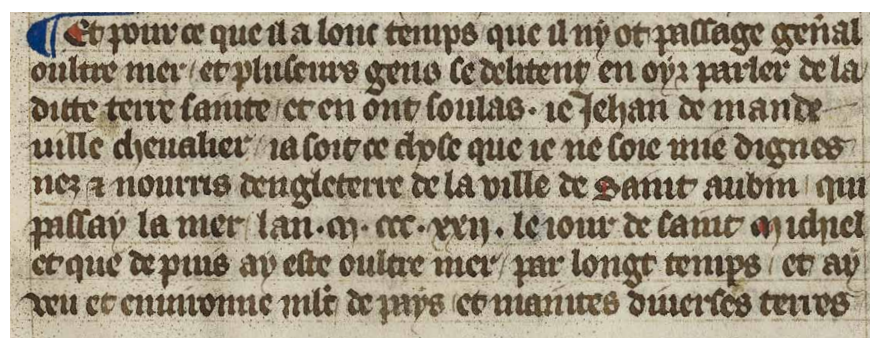 ¶ Et pour ce que il a lonc temps que il ny ot passage gen̄al
oultre mer / et pluseurs gens se delitent en oyr parler de la
ditte terre sainte / et en ont soulas . ie Jehan de mande
uille cheualier / ia soit ce chose que ie ne soie mie dignes
nez ⁊ nourris dengleterre de la ville de Saint aubin / qui
passay la mer / lan . m . ccc . xxij . le iour de saint Michiel
et que depuis ay este oultre mer / par longt temps / et ay
veu et enuironne ml̄t de pays / et maintes diuerses terres